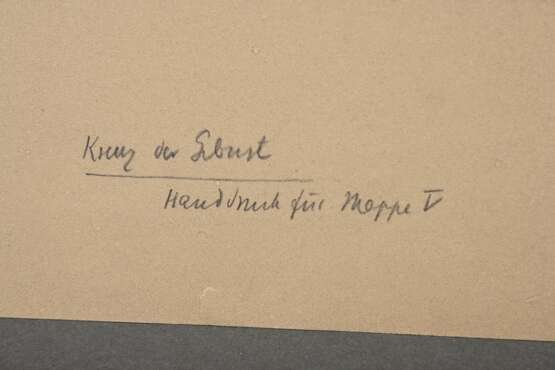 Kreuz der Geburt
Handdruck für Mappe V